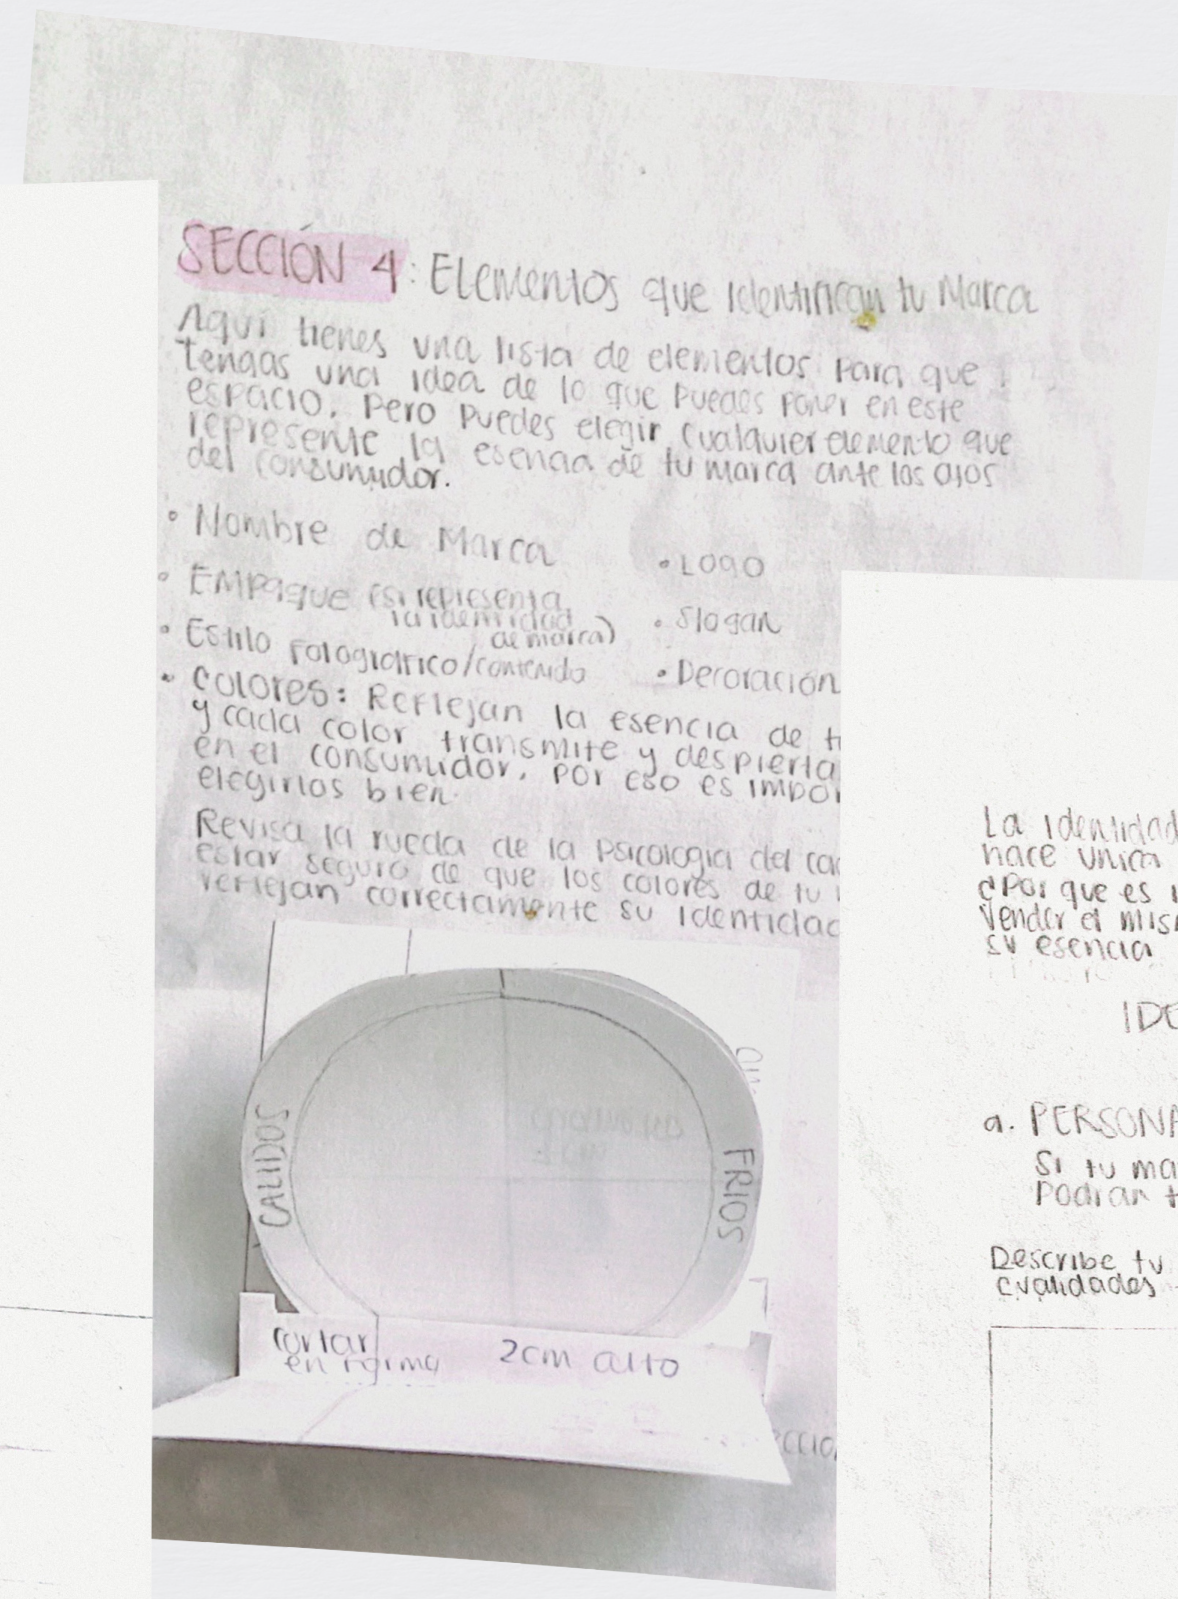 SECCIÓN 4: Elementos que identifican tu Marca
Aquí tienes una lista de elementos para que
tengas una idea de lo que puedes poner en este
espacio, pero puedes elegir cualquier elemento que
represente la esencia de tu marca ante los ojos
del consumidor.
• Nombre de Marca
• Logo
• Empaque (si representa
la identidad
de marca)
• Slogan
• Estilo Fotográfico/contenido
• Decoración
• Colores: Reflejan la esencia de t
y cada color transmite y despierta
en el consumidor, por eso es impor
elegirlos bien.
Revisa la rueda de la psicología del
estar seguro de que los colores de tu
reflejan correctamente su identidad
CALIDOS
FRIOS
cortar
en forma
2cm alto
La identidad
hace única
¿Por que es
Vender el mis
su esencia
IDE
a. PERSONA
Si tu ma
Podrían t
Describe tu
cualidades